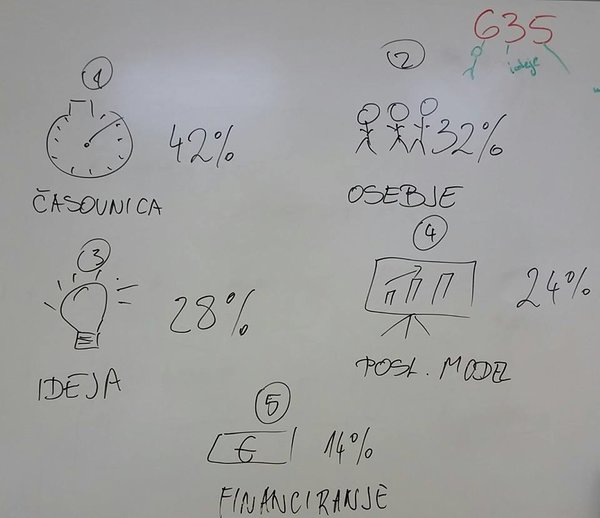 635
ideje
1
42%
ČASOVNICA
2
32%
OSEBJE
3
28%
IDEJA
4
24%
POSL. MODEL
5
€
14%
FINANCIRANJE